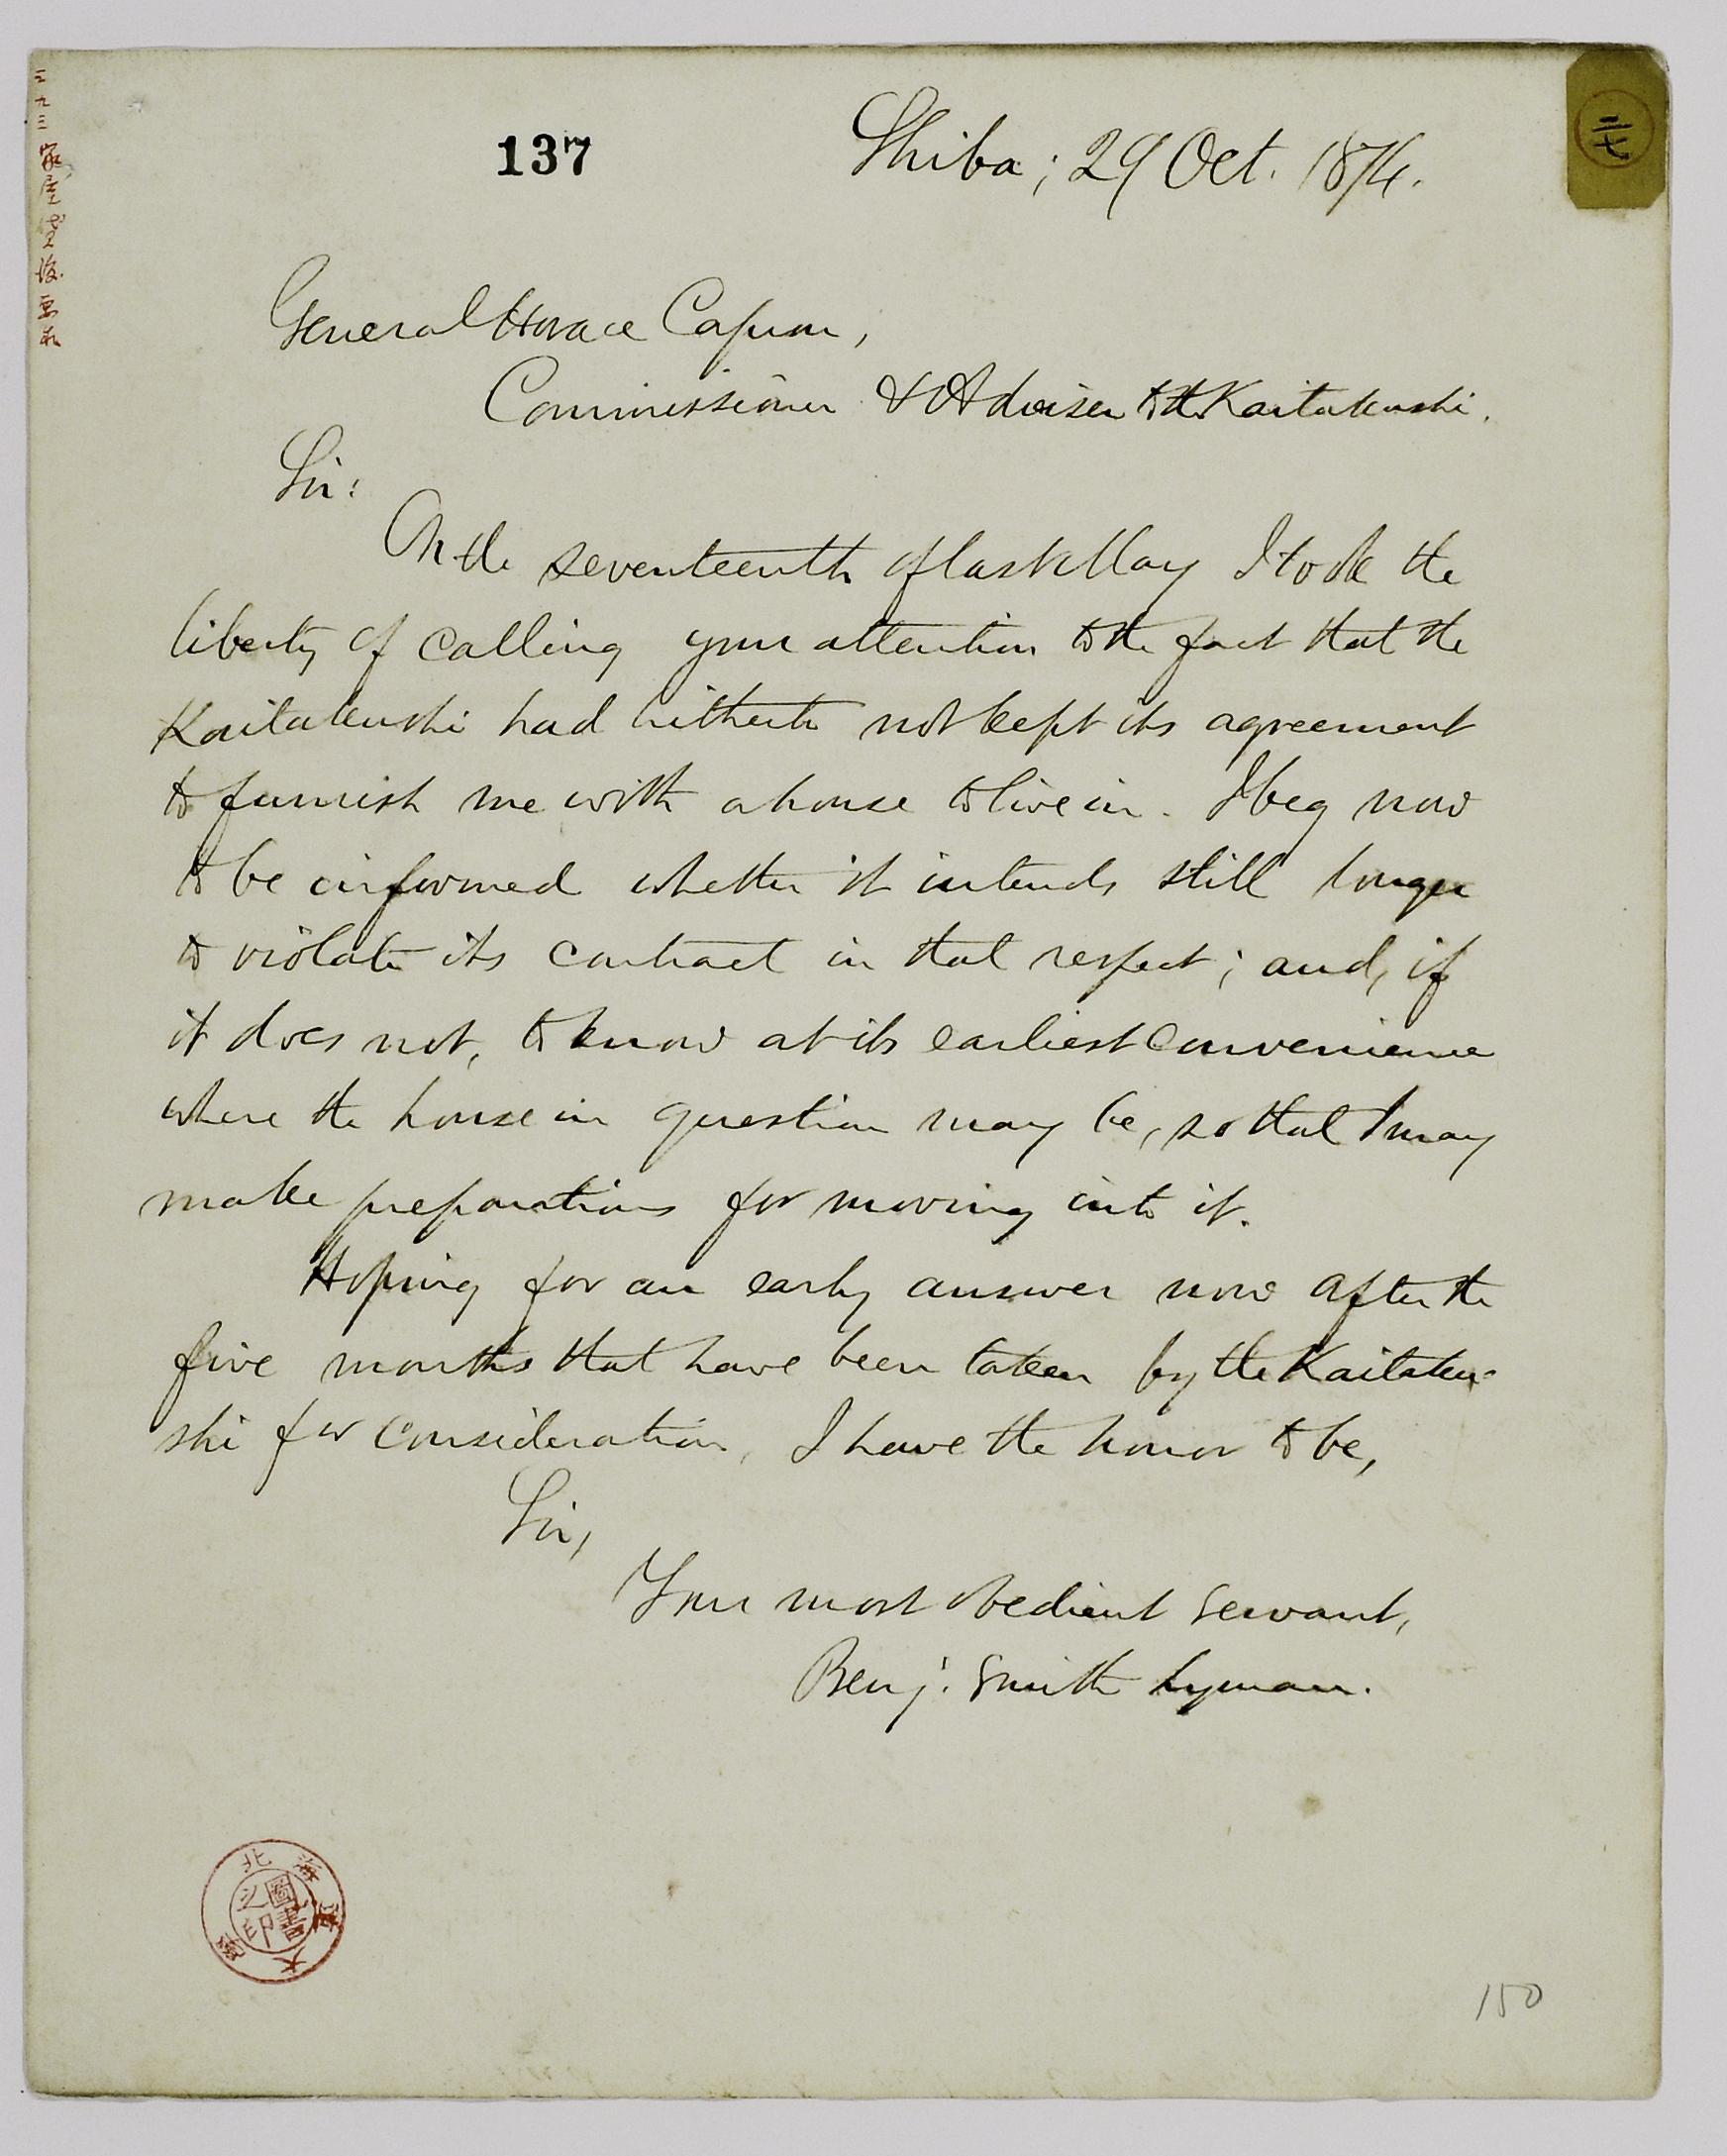 137
Shiba; 29 Oct. 1874.
二七
General Horace Capron,
Commissioner & Adviser to the Kaitakushi.
Sir:
On the seventeenth of last May I took the
liberty of calling your attention to the fact that the
Kaitakushi had hitherto not kept its agreement
to furnish me with a house to live in. I beg now
to be informed whether it intends still longer
to violate its contract in that respect; and, if
it does not, to know at its earliest convenience
where the house in question may be, so that I may
make preparations for moving into it.
Hoping for an early answer now after the
five months that have been taken by the Kaitaku-
shi for consideration, I have the honor to be,
Sir,
Your most obedient servant,
Benj. Smith Lyman.
北海道大學
圖書之印
150